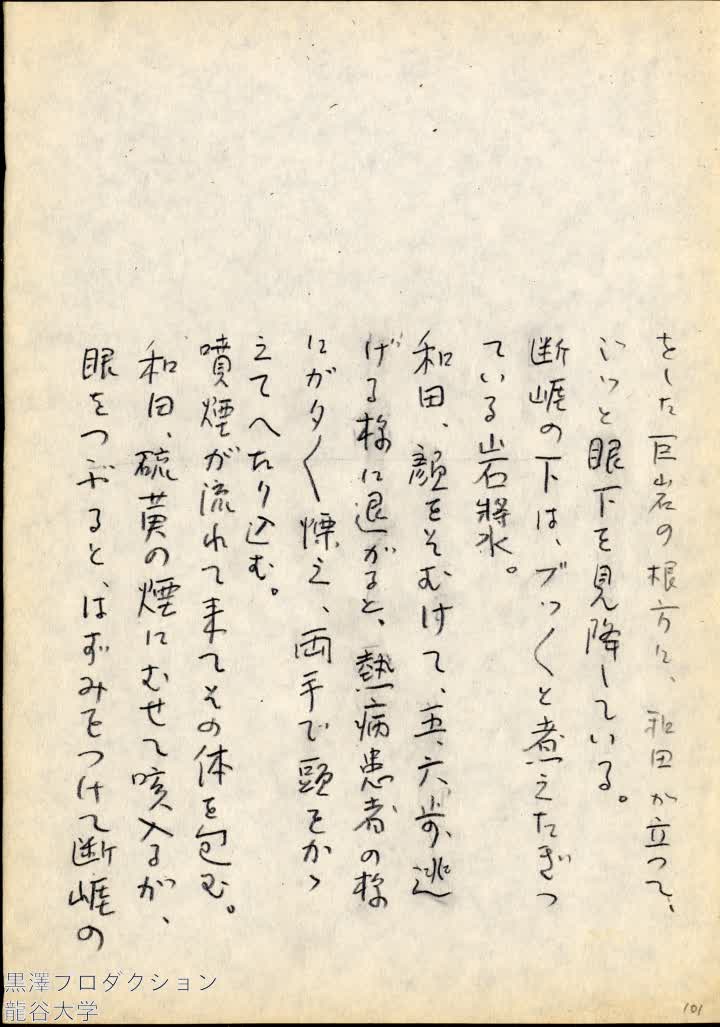 をした巨岩の根方に、和田が立って、
じっと眼下を見降している。
断崖の下は、ブツ〱と煮えたぎっ
ている岩漿。
和田、顔をそむけて、五、六歩、逃
げる様に退がると、熱病患者の様
にガタ〱慄え、両手で頭をかゝ
えてへたり込む。
噴煙が流れて来てその体を包む。
和田、硫黄の煙にむせて咳入るが、
眼をつぶると、はずみをつけて断崖の
101
黒澤プロダクション
龍谷大学